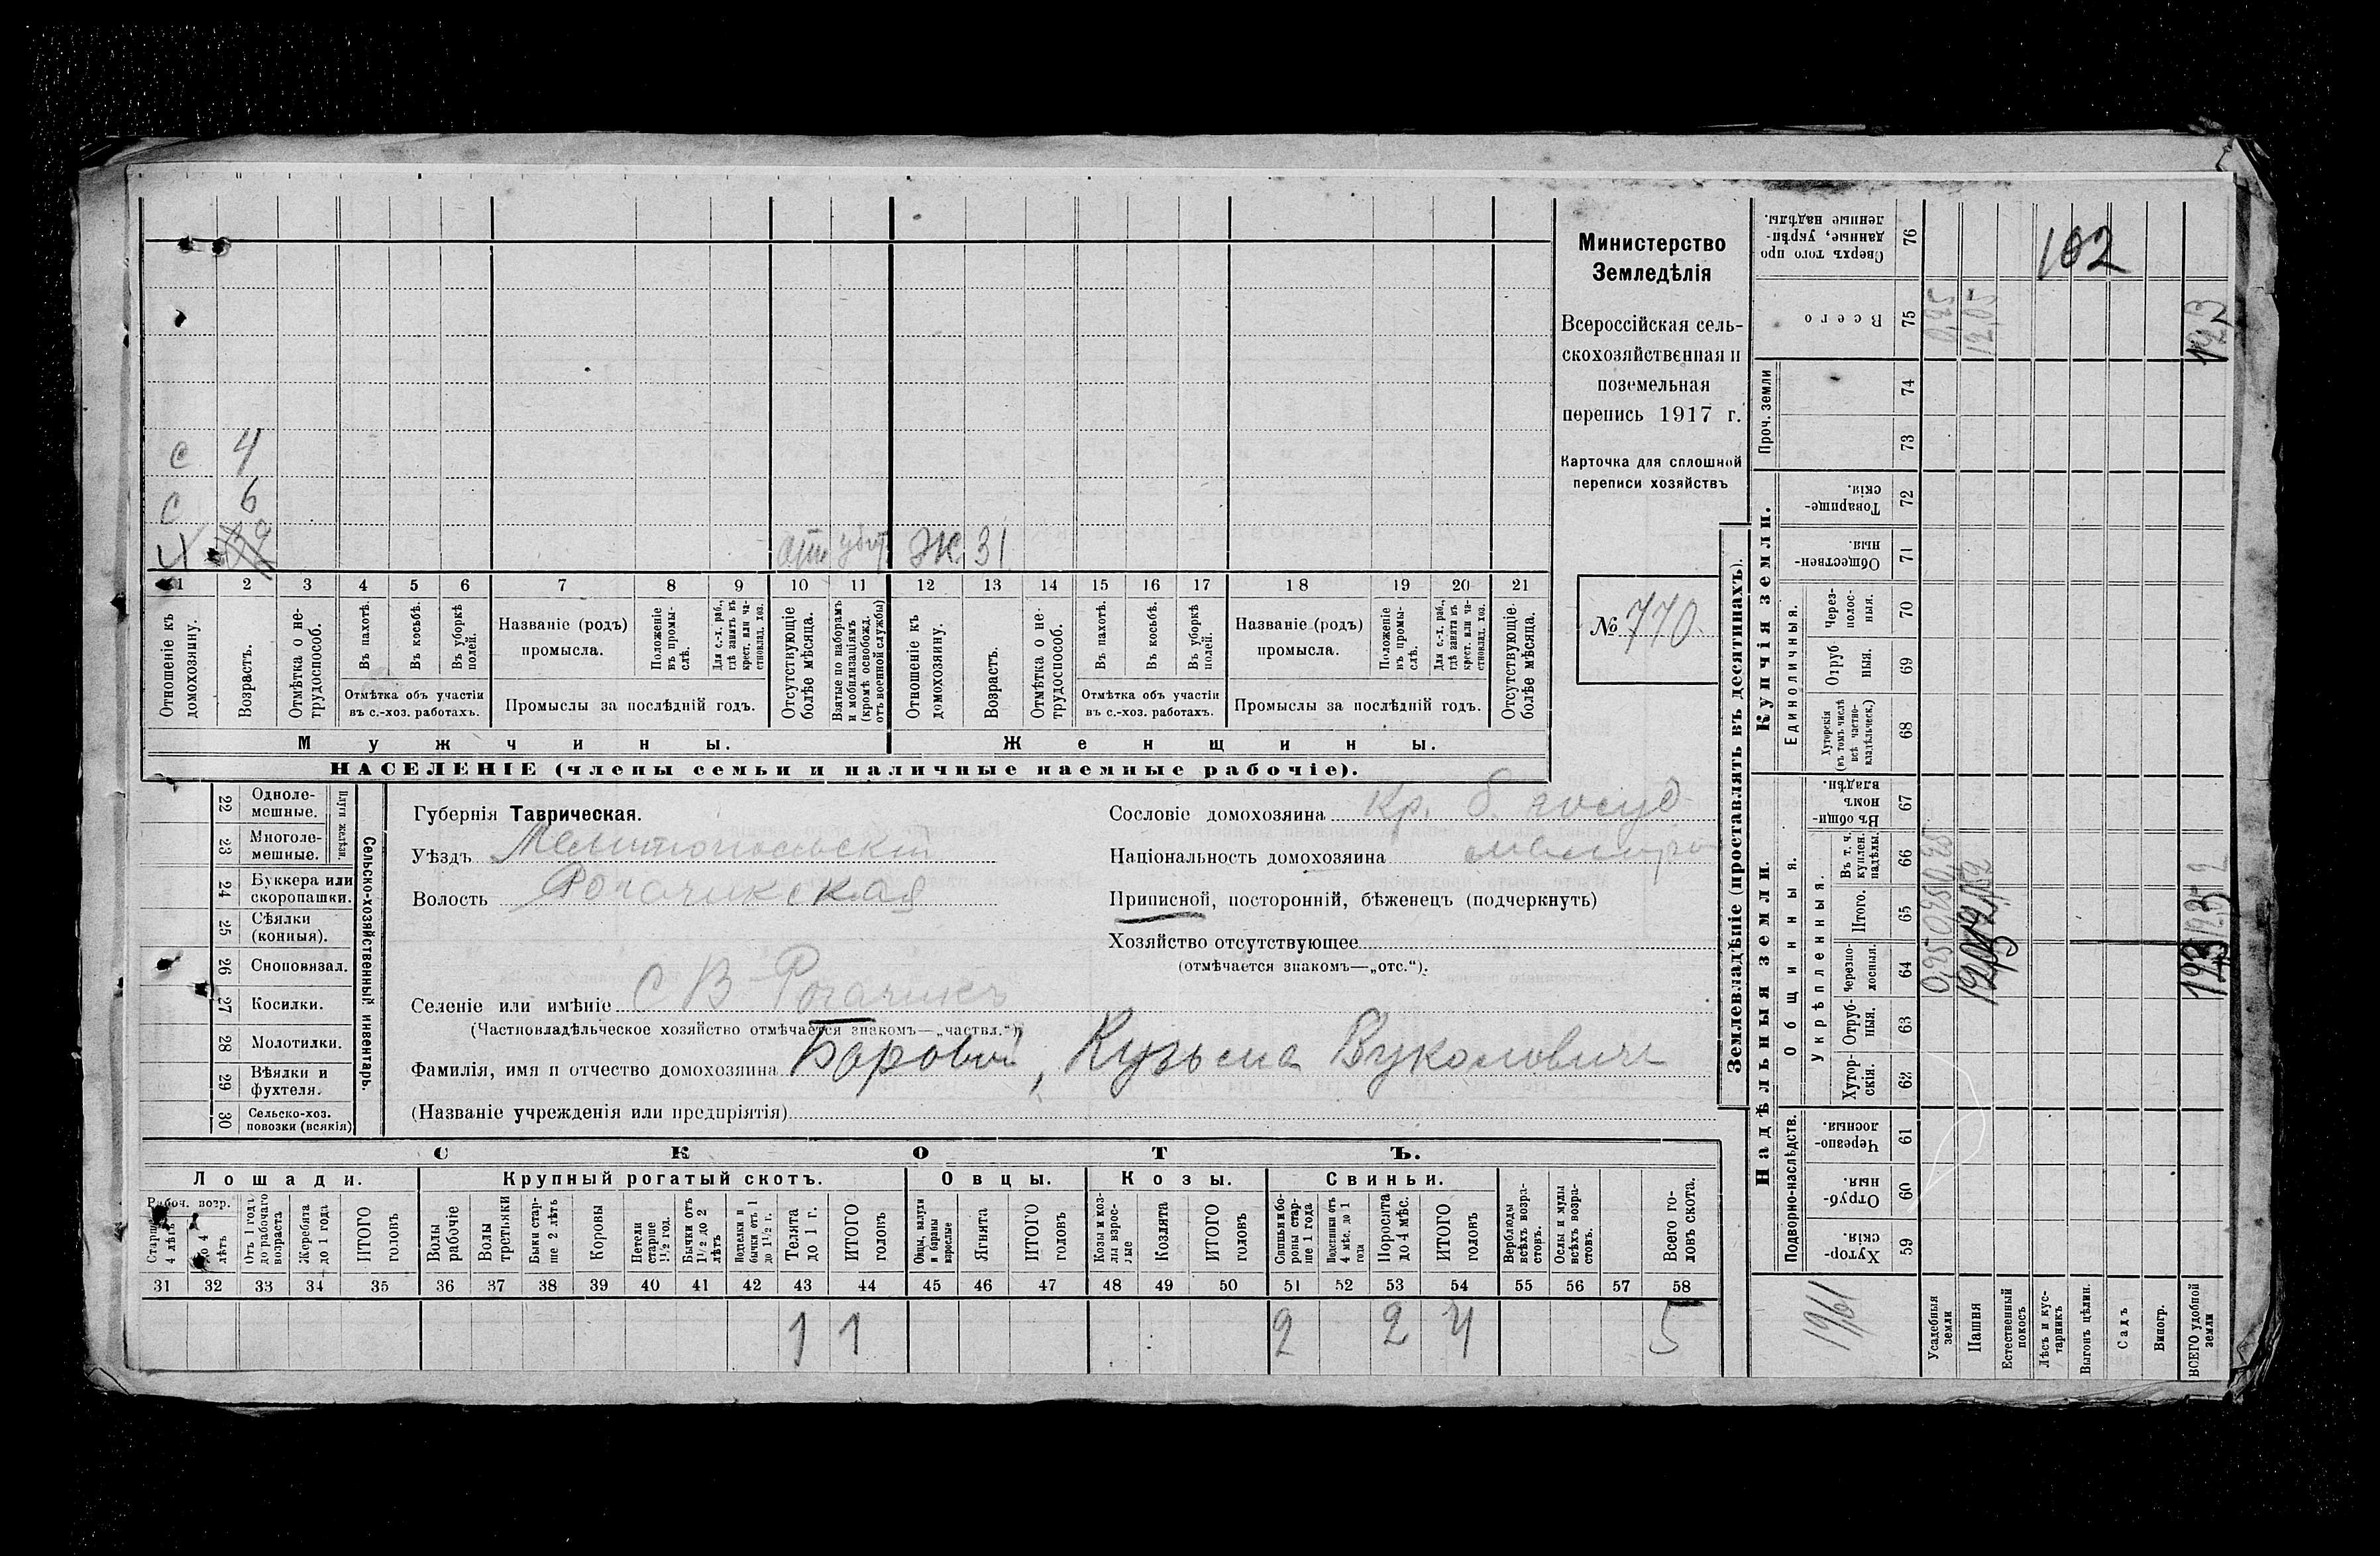 102
с 4
с 6
х 39 отс убит Ж 31
1 2 3 4 5 6 7 8 9 10 11 12 13 14 15 16 17 18 19 20 21
Отношеніе къ домохозяину.
Возрастъ.
Отмѣтка о не-трудоспособ.
Въ пахотѣ.
Въ косьбѣ.
Въ уборкѣ полей.
Отмѣтка объ участіи
въ с.-хоз. работахъ.
Названіе (родъ)
промысла.
Положеніе въ промы-слѣ.
Для с.-х. раб., гдѣ занятъ въ крест. или ча-стновлад. хоз.
Промыслы за послѣдній годъ.
Отсутствующіе болѣе мѣсяца.
Взятые по наборамъ и мобилизаціямъ (кромѣ освобожд. отъ военной службы)
Отношеніе къ домохозяину.
Возрастъ.
Отмѣтка о не-трудоспособ.
Въ пахотѣ.
Въ косьбѣ.
Въ уборкѣ полей.
Отмѣтка объ участіи
въ с.-хоз. работахъ.
Названіе (родъ)
промысла.
Положеніе въ промы-слѣ.
Для с.-х. раб., гдѣ занята въ крест. или ча-стновлад. хоз.
Промыслы за послѣдній годъ.
Отсутствующіе болѣе мѣсяца.
Мужчины.
Женщины.
НАСЕЛЕНІЕ (члены семьи и наличные наемные рабочіе).
Министерство
Земледѣлія
Всероссійская сель-
скохозяйственная и
поземельная
перепись 1917 г.
Карточка для сплошной
переписи хозяйствъ
№ 770
Сельско-хозяйственный инвентарь.
Плуги желѣзн.
22 Одноле-мешные.
23 Многоле-мешные.
24 Буккера или скоропашки.
25 Сѣялки (конныя).
26 Сноповязал.
27 Косилки.
28 Молотилки.
29 Вѣялки и фухтеля.
30 Сельско-хоз. повозки (всякія)
Губернія Таврическая.
Уѣздъ Мелитопольскій
Волость Рогачикская
Селеніе или имѣніе С В-Рогачикъ
(Частновладѣльческое хозяйство отмѣчается знакомъ—„частвл.“)
Фамилія, имя и отчество домохозяина Боровой, Кузьма Вуколовичъ
(Названіе учрежденія или предпріятія)
Сословіе домохозяина кр. б. госуд
Національность домохозяина малоро
Приписной, посторонній, бѣженецъ (подчеркнуть)
Хозяйство отсутствующее
(отмѣчается знакомъ—„отс.“).
СКОТЪ.
Лошади.
Крупный рогатый скотъ.
Овцы.
Козы.
Свиньи.
Рабоч. возр.
Старше 4 лѣтъ
До 4 лѣтъ
Отъ 1 года до рабочаго возраста
Жеребята до 1 года
ИТОГО головъ
Волы рабочіе
Волы третьяки
Быки стар-ше 2 лѣтъ
Коровы
Нетели старше 1½ год.
Бычки отъ 1½ до 2 лѣтъ
Подтелки и бычки отъ 1 до 1½ г.
Телята до 1 г.
ИТОГО головъ
Овцы, валухи и бараны взрослые
Ягнята
ИТОГО головъ
Козы и коз-лы взрос-лые
Козлята
ИТОГО головъ
Свиньи и бо-ровы стар-ше 1 года
Подсвинки отъ 4 мѣс. до 1 года
Поросята до 4 мѣс.
ИТОГО головъ
Верблюды всѣхъ возра-стовъ.
Ослы и мулы всѣхъ возра-стовъ.
Всего го-ловъ скота.
31 32 33 34 35 36 37 38 39 40 41 42 43 44 45 46 47 48 49 50 51 52 53 54 55 56 57 58
1 1 2 2 4 5
Землевладѣніе (проставлять въ десятинахъ).
Надѣльныя земли.
Купчія земли.
Проч. земли
Подворно-наслѣдств.
Общинныя.
Укрѣпленныя.
Единоличныя.
Хутор-скія. 59
Отруб-ныя. 60
Черезпо-лосныя. 61
Хутор-скія. 62
Отруб-ныя. 63
Черезпо-лосныя. 64
Итого. 65
Въ т. ч. куплен. надѣлы. 66
Въ общин-номъ владѣн. 67
Хуторскія (въ томъ числѣ всѣ частно-владѣльческ.) 68
Отруб-ныя. 69
Через-полос-ныя. 70
Обществен-ныя. 71
Товарище-скія. 72
73
74
Всего 75
Сверхъ того про-данные, укрѣп-ленные надѣлы. 76
1961
Усадебныя земли 0,25 0,25 0,25 0,25
Пашня 12,05
Естественный покосъ
Лѣсъ и кус-тарникъ
Выгонъ цѣлин.
Садъ
Виногр.
ВСЕГО удобной земли 12,3